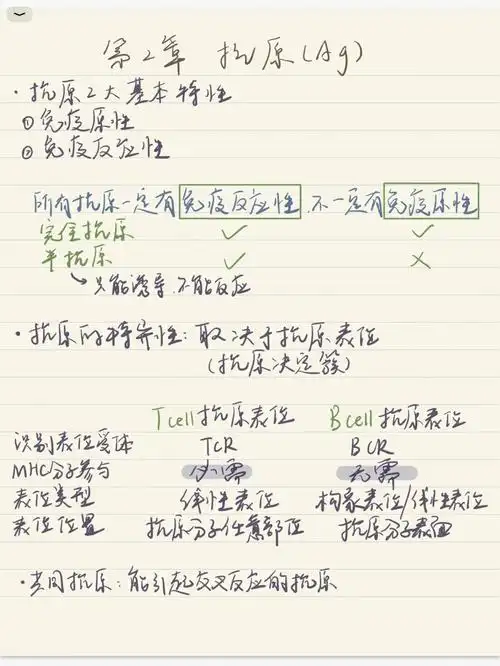 第2章 抗原(Ag)
·抗原2大基本特性
①免疫原性
②免疫反应性
所有抗原一定有免疫反应性.不一定有免疫原性
完全抗原 ✓ ✓
半抗原 ✓ ×
↳只能诱导.不能反应
·抗原的特异性:取决于抗原表位
(抗原决定簇)
Tcell抗原表位 Bcell抗原表位
识别表位受体 TCR BCR
MHC分子参与 必需 无需
表位类型 线性表位 构象表位/线性表位
表位位置 抗原分子任意部位 抗原分子表面
·共同抗原:能引起交叉反应的抗原